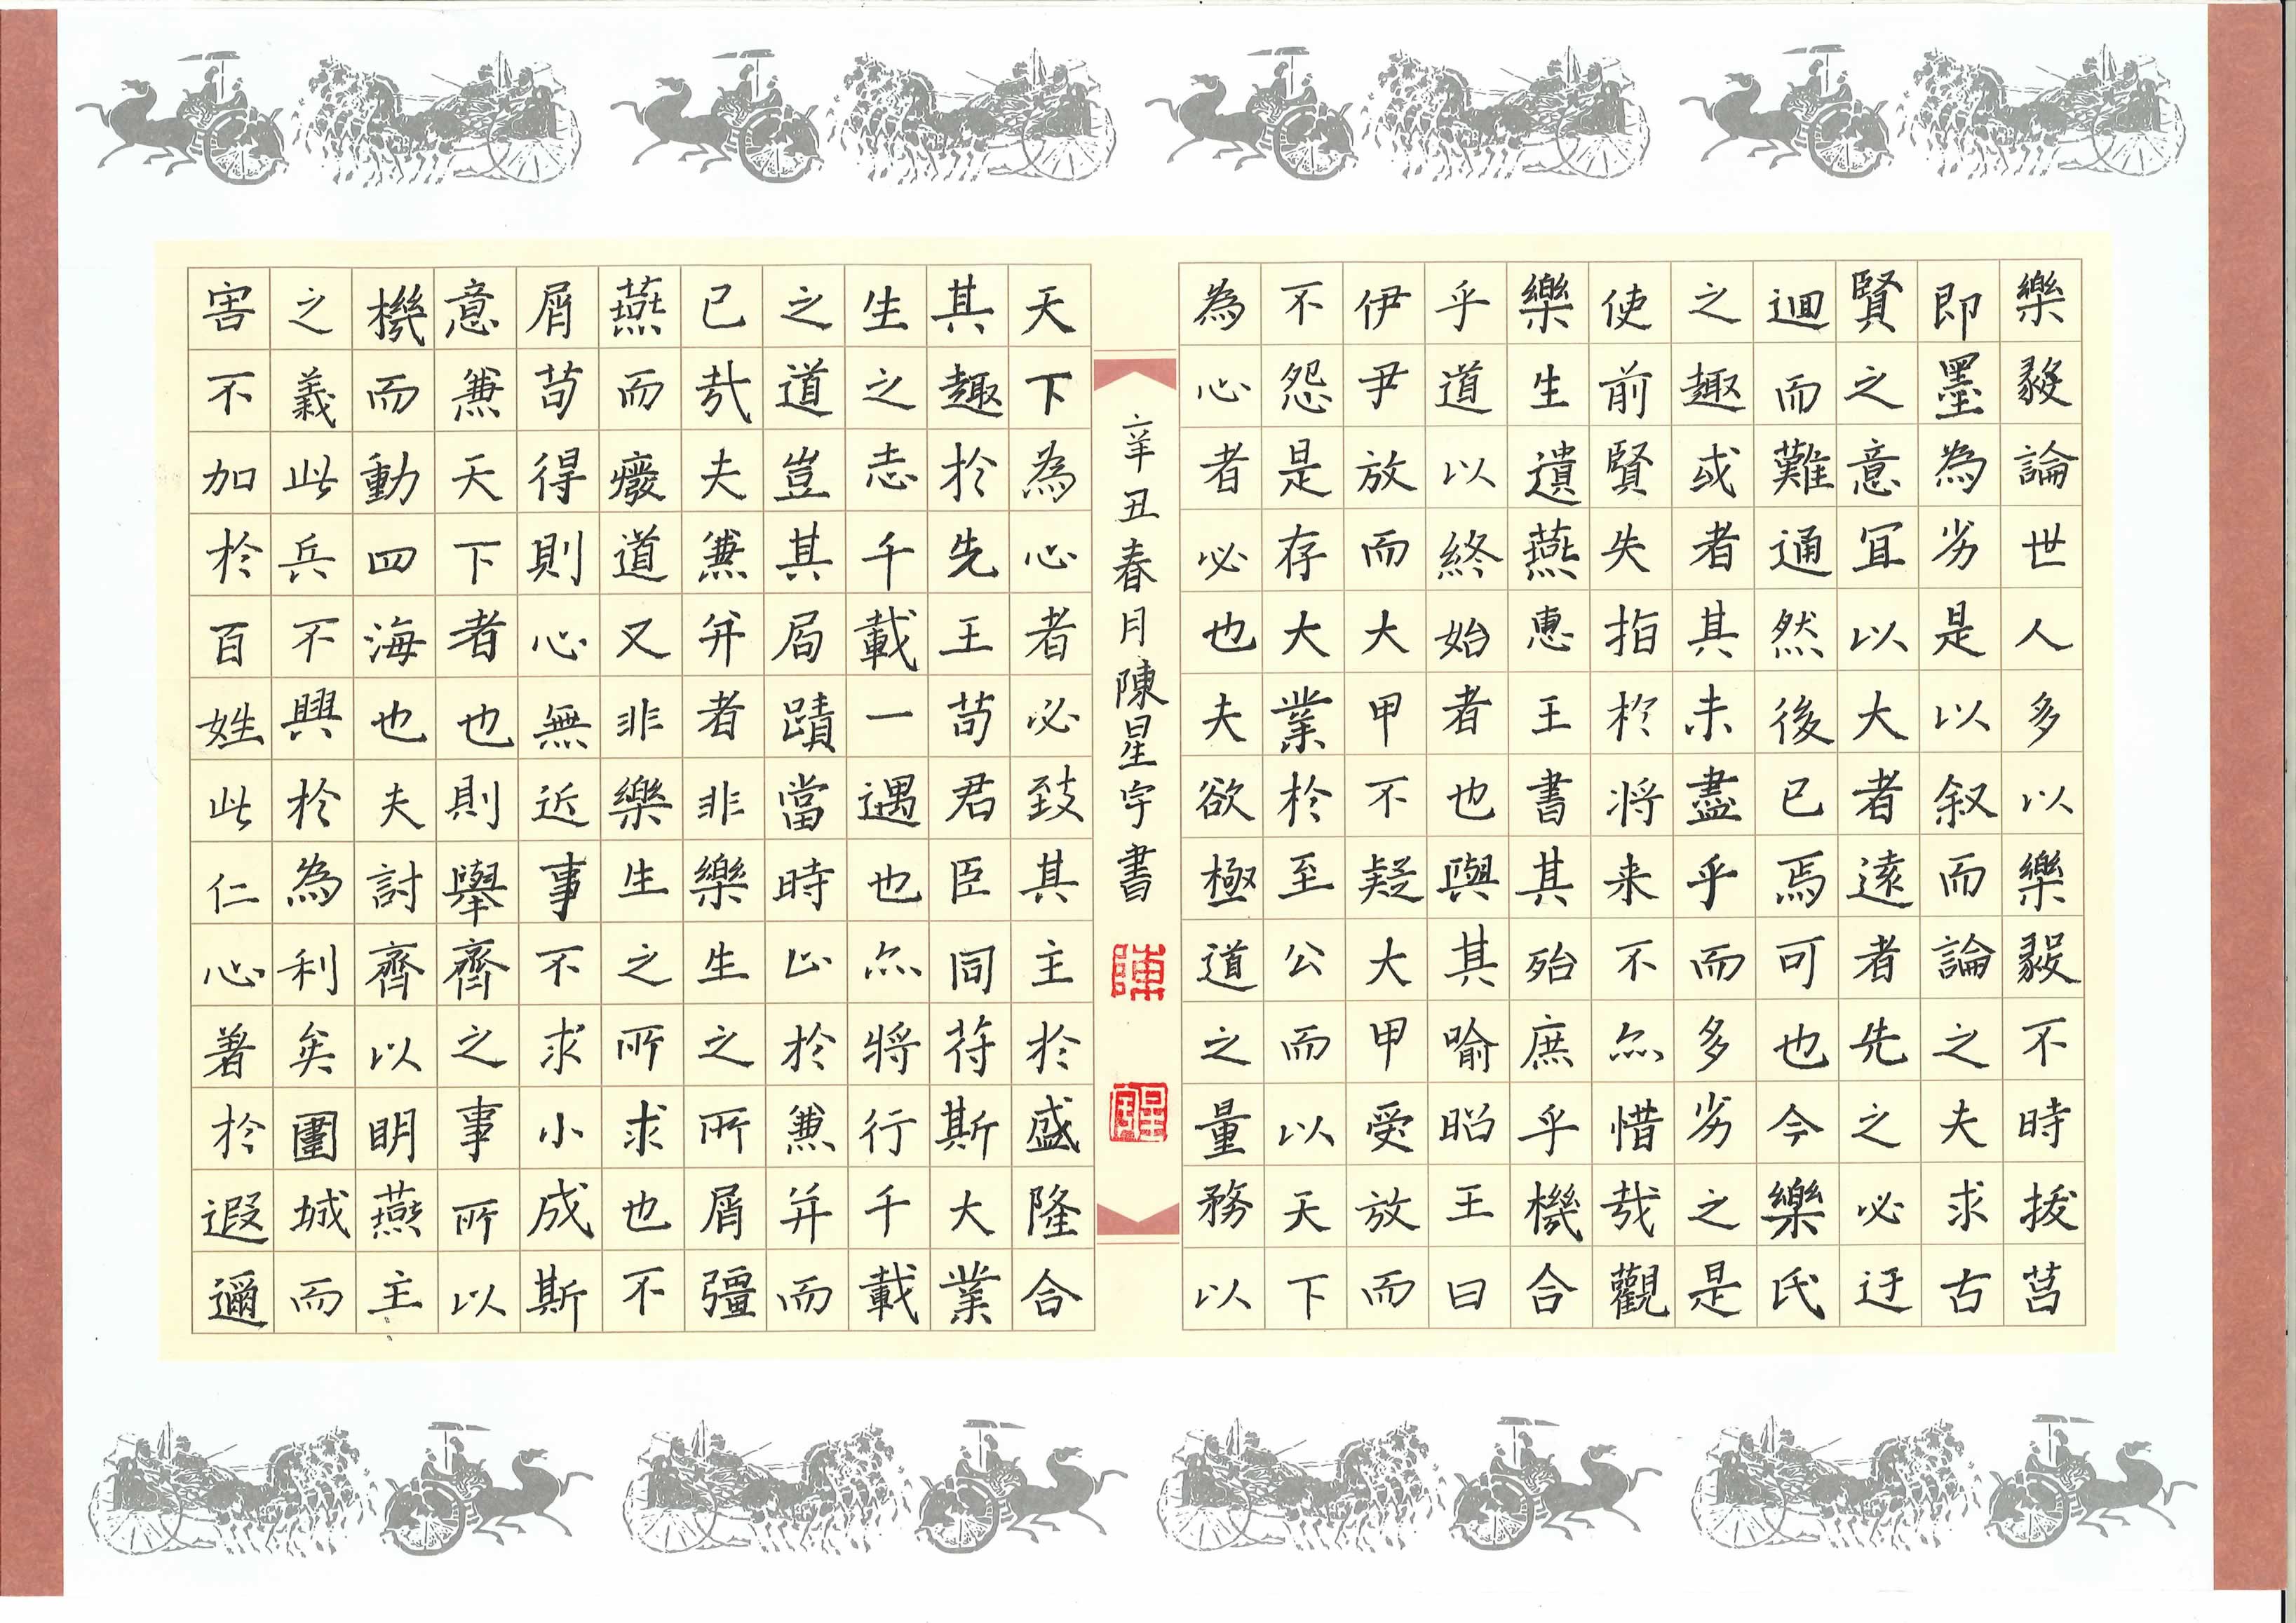 樂毅論世人多以樂毅不時拔莒
即墨為劣是以叙而論之夫求古
賢之意宜以大者遠者先之必迂
迴而難通然後已焉可也今樂氏
之趣或者其未盡乎而多劣之是
使前賢失指於将来不亦惜哉觀
樂生遺燕惠王書其殆庶乎機合
乎道以終始者也與其喻昭王曰
伊尹放而大甲不疑大甲受放而
不怨是存大業於至公而以天下
為心者必也夫欲極道之量務以
辛丑春月陳星宇書
陳
天下為心者必致其主於盛隆合
其趣於先王苟君臣同符斯大業
生之志千載一遇也亦将行千載
之道豈其局蹟當時止於兼并而
已哉夫兼并者非樂生之所屑彊
燕而癈道又非樂生之所求也不
屑苟得則心無近事不求小成斯
意兼天下者也則舉齊之事所以
機而動四海也夫討齊以明燕主
之義此兵不興於為利矣圍城而
害不加於百姓此仁心著於遐邇